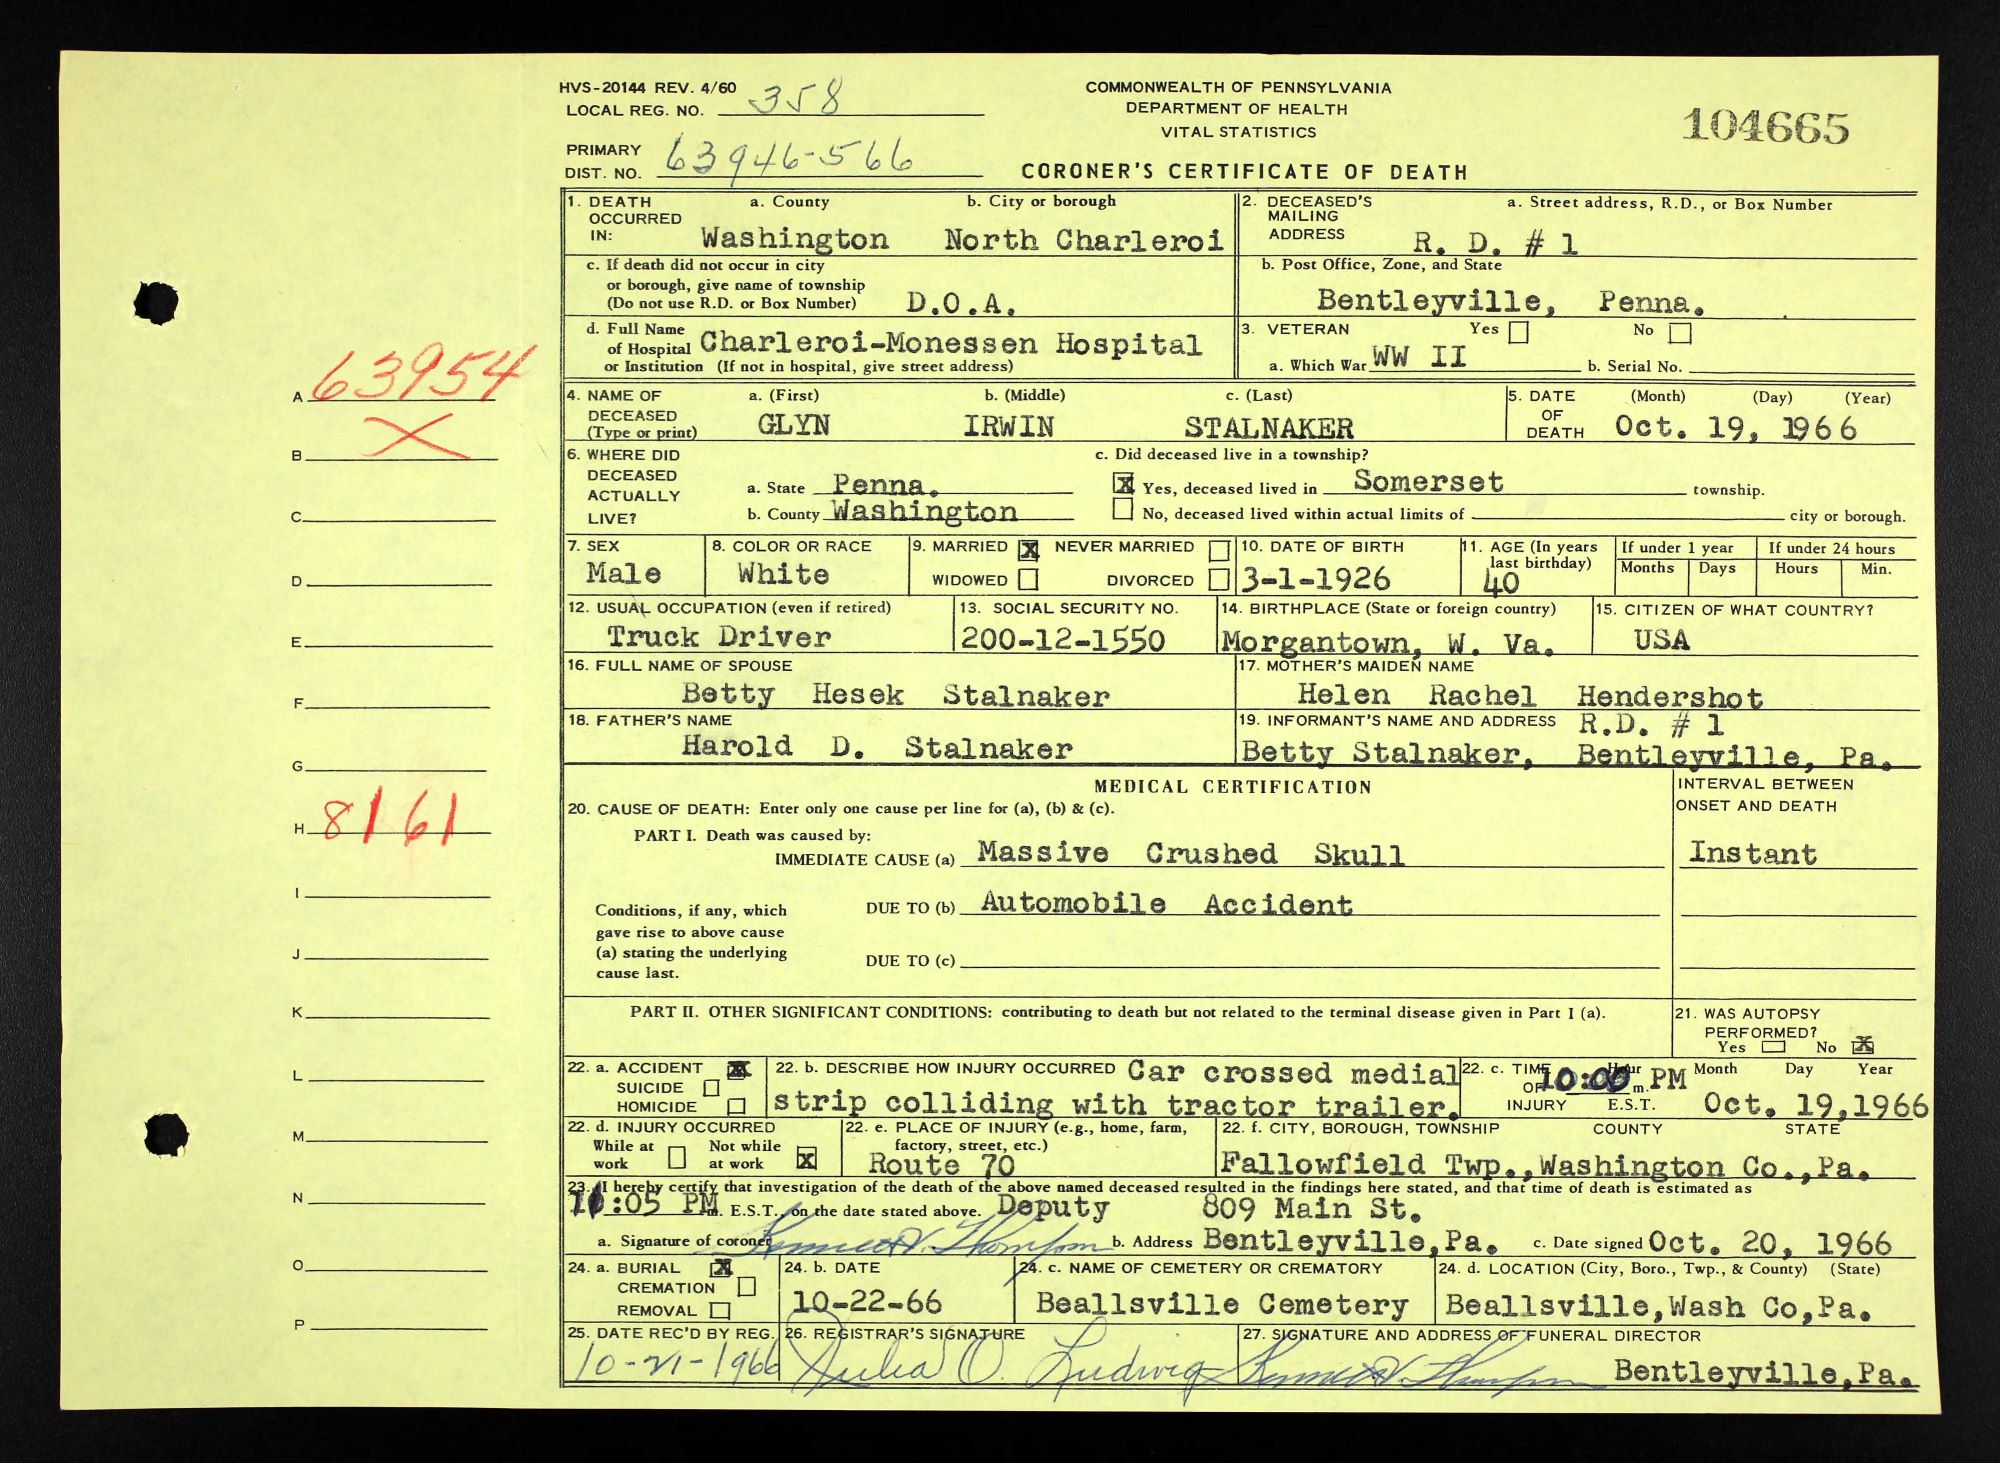 HVS-20144 REV. 4/60
LOCAL REG. NO. 358
COMMONWEALTH OF PENNSYLVANIA
DEPARTMENT OF HEALTH
VITAL STATISTICS
104665
PRIMARY
DIST. NO. 63946-566
CORONER'S CERTIFICATE OF DEATH
1. DEATH OCCURRED IN: a. County b. City or borough
Washington North Charleroi
2. DECEASED'S MAILING ADDRESS a. Street address, R.D., or Box Number
R. D. # 1
c. If death did not occur in city
or borough, give name of township
(Do not use R.D. or Box Number) D.O.A.
b. Post Office, Zone, and State
Bentleyville, Penna.
d. Full Name
of Hospital Charleroi-Monessen Hospital
or Institution (If not in hospital, give street address)
3. VETERAN Yes No
a. Which War WW II b. Serial No.
4. NAME OF DECEASED (Type or print) a. (First) b. (Middle) c. (Last)
GLYN IRWIN STALNAKER
5. DATE OF DEATH (Month) (Day) (Year)
Oct. 19, 1966
6. WHERE DID DECEASED ACTUALLY LIVE?
a. State Penna.
b. County Washington
c. Did deceased live in a township?
X Yes, deceased lived in Somerset township.
No, deceased lived within actual limits of city or borough.
7. SEX
Male
8. COLOR OR RACE
White
9. MARRIED X NEVER MARRIED
WIDOWED DIVORCED
10. DATE OF BIRTH
3-1-1926
11. AGE (In years last birthday)
40
If under 1 year
Months Days
If under 24 hours
Hours Min.
12. USUAL OCCUPATION (even if retired)
Truck Driver
13. SOCIAL SECURITY NO.
200-12-1550
14. BIRTHPLACE (State or foreign country)
Morgantown, W. Va.
15. CITIZEN OF WHAT COUNTRY?
USA
16. FULL NAME OF SPOUSE
Betty Hesek Stalnaker
17. MOTHER'S MAIDEN NAME
Helen Rachel Hendershot
18. FATHER'S NAME
Harold D. Stalnaker
19. INFORMANT'S NAME AND ADDRESS R.D. # 1
Betty Stalnaker, Bentleyville, Pa.
MEDICAL CERTIFICATION
INTERVAL BETWEEN
ONSET AND DEATH
20. CAUSE OF DEATH: Enter only one cause per line for (a), (b) & (c).
PART I. Death was caused by:
IMMEDIATE CAUSE (a) Massive Crushed Skull Instant
Conditions, if any, which
gave rise to above cause
(a) stating the underlying
cause last.
DUE TO (b) Automobile Accident
DUE TO (c)
PART II. OTHER SIGNIFICANT CONDITIONS: contributing to death but not related to the terminal disease given in Part I (a).
21. WAS AUTOPSY
PERFORMED?
Yes No X
22. a. ACCIDENT X
SUICIDE
HOMICIDE
22. b. DESCRIBE HOW INJURY OCCURRED Car crossed medial
strip colliding with tractor trailer.
22. c. TIME OF INJURY Hour Month Day Year
10:00 m. PM
E.S.T. Oct. 19,1966
22. d. INJURY OCCURRED
While at work Not while at work X
22. e. PLACE OF INJURY (e.g., home, farm,
factory, street, etc.)
Route 70
22. f. CITY, BOROUGH, TOWNSHIP COUNTY STATE
Fallowfield Twp.,Washington Co.,Pa.
23. I hereby certify that investigation of the death of the above named deceased resulted in the findings here stated, and that time of death is estimated as
:05 PM m. E.S.T., on the date stated above. Deputy 809 Main St.
a. Signature of coroner Thompson b. Address Bentleyville,Pa. c. Date signed Oct. 20, 1966
24. a. BURIAL X
CREMATION
REMOVAL
24. b. DATE
10-22-66
24. c. NAME OF CEMETERY OR CREMATORY
Beallsville Cemetery
24. d. LOCATION (City, Boro., Twp., & County) (State)
Beallsville,Wash Co,Pa.
25. DATE REC'D BY REG.
10-21-1966
26. REGISTRAR'S SIGNATURE
Julia O. Ludwig
27. SIGNATURE AND ADDRESS OF FUNERAL DIRECTOR
Thompson Bentleyville,Pa.
A 63954
X
B
C
D
E
F
G
H 8161
I
J
K
L
M
N
O
P